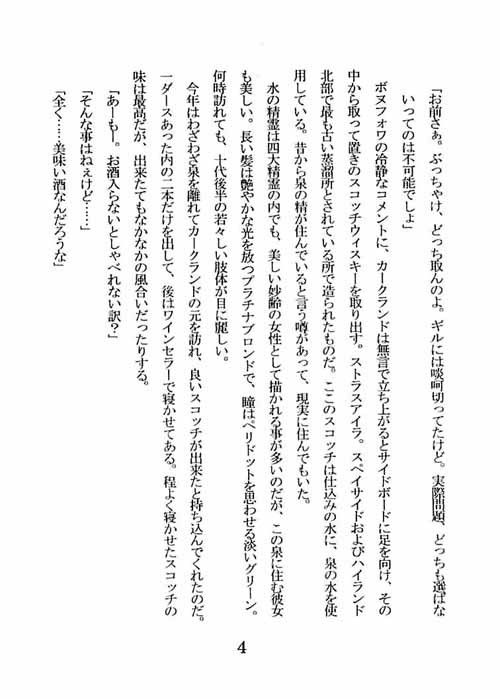 「お前さぁ。ぶっちゃけ、どっち取んのよ。ギルには啖呵切ってたけど。実際問題、どっちも選ばな
いってのは不可能でしょ」
ボヌフォワの冷静なコメントに、カークランドは無言で立ち上がるとサイドボードに足を向け、その
中から取って置きのスコッチウィスキーを取り出す。ストラスアイラ。スペイサイドおよびハイランド
北部で最も古い蒸溜所とされている所で造られたものだ。ここのスコッチは仕込みの水に、泉の水を使
用している。昔から泉の精が住んでいると言う噂があって、現実に住んでもいた。
水の精霊は四大精霊の内でも、美しい妙齢の女性として描かれる事が多いのだが、この泉に住む彼女
も美しい。長い髪は艶やかな光を放つプラチナブロンドで、瞳はペリドットを思わせる淡いグリーン。
何時訪れても、十代後半の若々しい肢体が目に麗しい。
今年はわざわざ泉を離れてカークランドの元を訪れ、良いスコッチが出来たと持ち込んでくれたのだ。
一ダースあった内の二本だけを出して、後はワインセラーで寝かせてある。程よく寝かせたスコッチの
味は最高だが、出来たてもなかなかの風合いだったりする。
「あーもー。お酒入らないとしゃべれない訳？」
「そんな事はねぇけど……」
「全く……美味い酒なんだろうな」
4